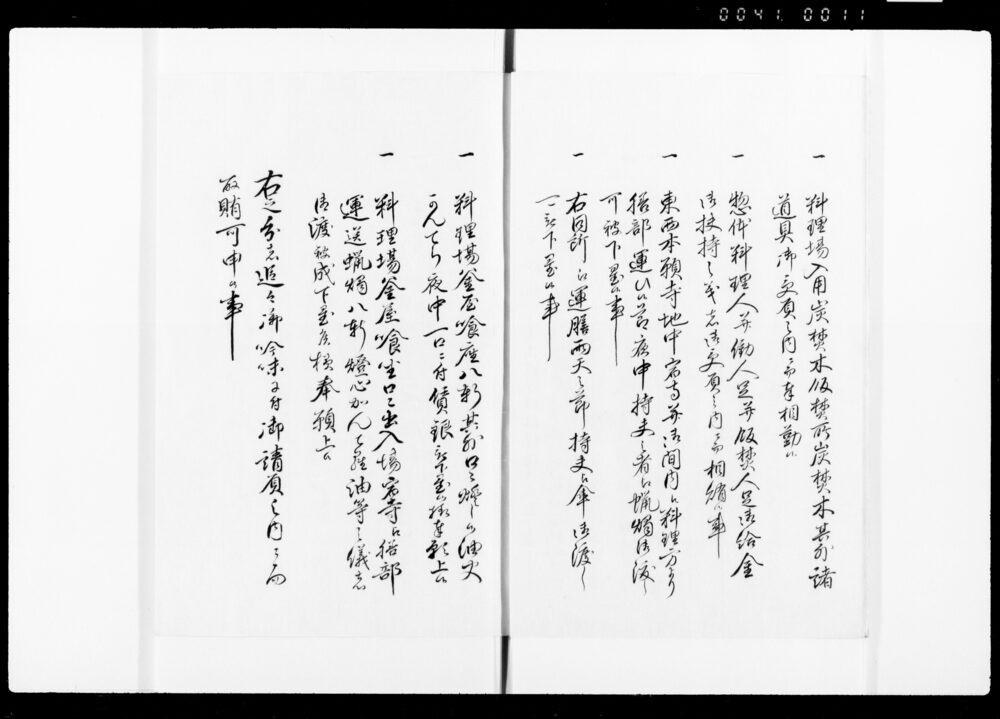 0041. 0011
一 料理場入用炭焚木飯焚所炭焚木其外諸
道具御受負之内ニ而相勤候
一 惣躰料理人并働人足并飯焚人足御給金
御扶持之義者御受負之内ニ而相納候事
一 東西本願寺地中宿寺并御間内江料理方より
膳部運ひ候節夜中持夫之者江蝋燭御渡し
可被下置候事
一 右同所江運膳雨天之節持夫江傘御渡し
可被下置候事
一 料理場釜屋喰座八軒其外口々燈し候油火
かんてら夜中一口ニ付賃銀被下置候様奉願上候
一 料理場釜屋喰出口々出入場宿寺江膳部
運送蝋燭八軒燈心かんてら油等之儀者
御渡被成下置候様奉願上候
右之分者追々御吟味ニ付御請負之内ニ而
取賄可申候事